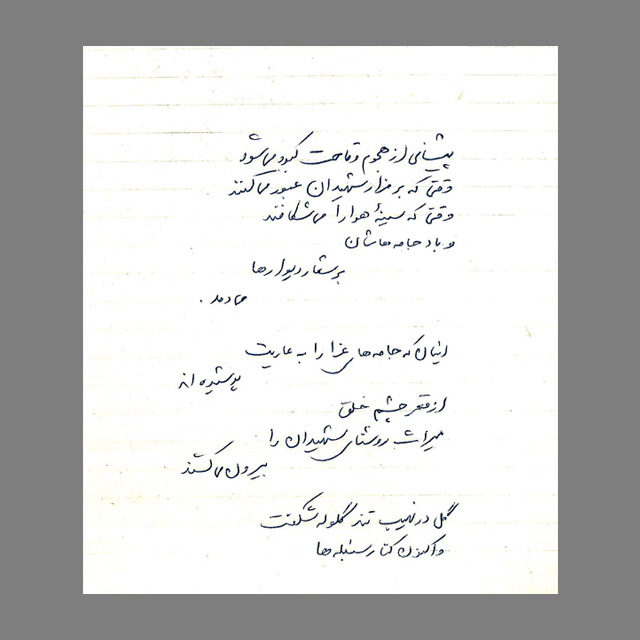 پیشانی از هجوم وقاحت کبود می‌شود
وقتی که بر مزار شهیدان عبور می‌کنند
وقتی که سینهٔ هوا را می‌شکافند
و باد جامه‌هاشان
بر دیوارها
می‌دمد .
اینان که جامه‌های عزا را به عاریت
پوشیده‌اند
از قعر چشم خلق
میراث روشنای شهیدان را
بیرون می‌کشند
گل در نهیب تند گلوله شکفت
و اکنون کنار سنبله‌ها